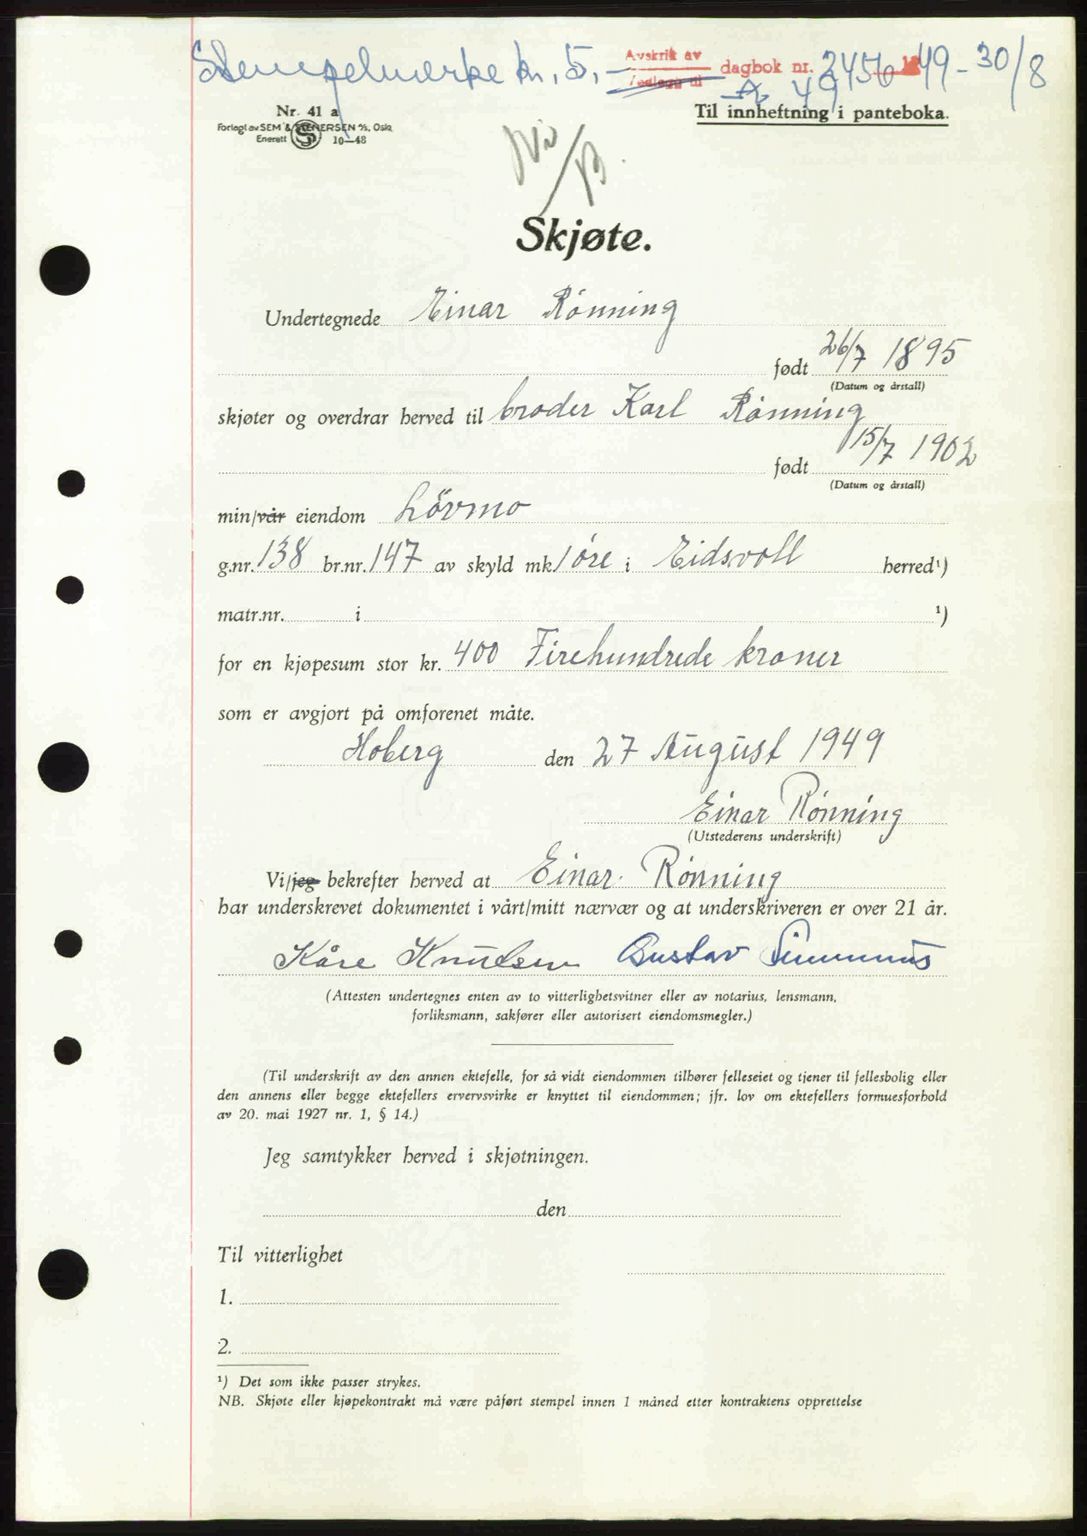 Stempelmerke kr. 5.- Avskrift av dagbok nr. 2456 1949 - 30/8
Vedlegg til
A 49
Nr. 41 a
Forlagt av SEM & STENERSEN A/S, Oslo.
Enerett 10—48
Til innheftning i panteboka.
Skjøte.
Undertegnede Einar Rönning
født 26/7 1895
(Datum og årstall)
skjøter og overdrar herved til broder Karl Rönning
født 15/7 1902
(Datum og årstall)
min/vår eiendom Lövmo
g.nr. 138 br.nr. 147 av skyld mk 1 øre i Eidsvoll herred¹)
matr.nr. i ¹)
for en kjøpesum stor kr. 400 Firehundrede kroner
som er avgjort på omforenet måte.
Hoberg den 27 August 1949
Einar Rönning
(Utstederens underskrift)
Vi/jeg bekrefter herved at Einar Rönning
har underskrevet dokumentet i vårt/mitt nærvær og at underskriveren er over 21 år.
Kåre Knudsen Gustav
(Attesten undertegnes enten av to vitterlighetsvitner eller av notarius, lensmann,
forliksmann, sakfører eller autorisert eiendomsmegler.)
(Til underskrift av den annen ektefelle, for så vidt eiendommen tilhører felleseiet og tjener til fellesbolig eller
den annens eller begge ektefellers ervervsvirke er knyttet til eiendommen; jfr. lov om ektefellers formuesforhold
av 20. mai 1927 nr. 1, § 14.)
Jeg samtykker herved i skjøtningen.
den
Til vitterlighet
1.
2.
¹) Det som ikke passer strykes.
NB. Skjøte eller kjøpekontrakt må være påført stempel innen 1 måned etter kontraktens opprettelse